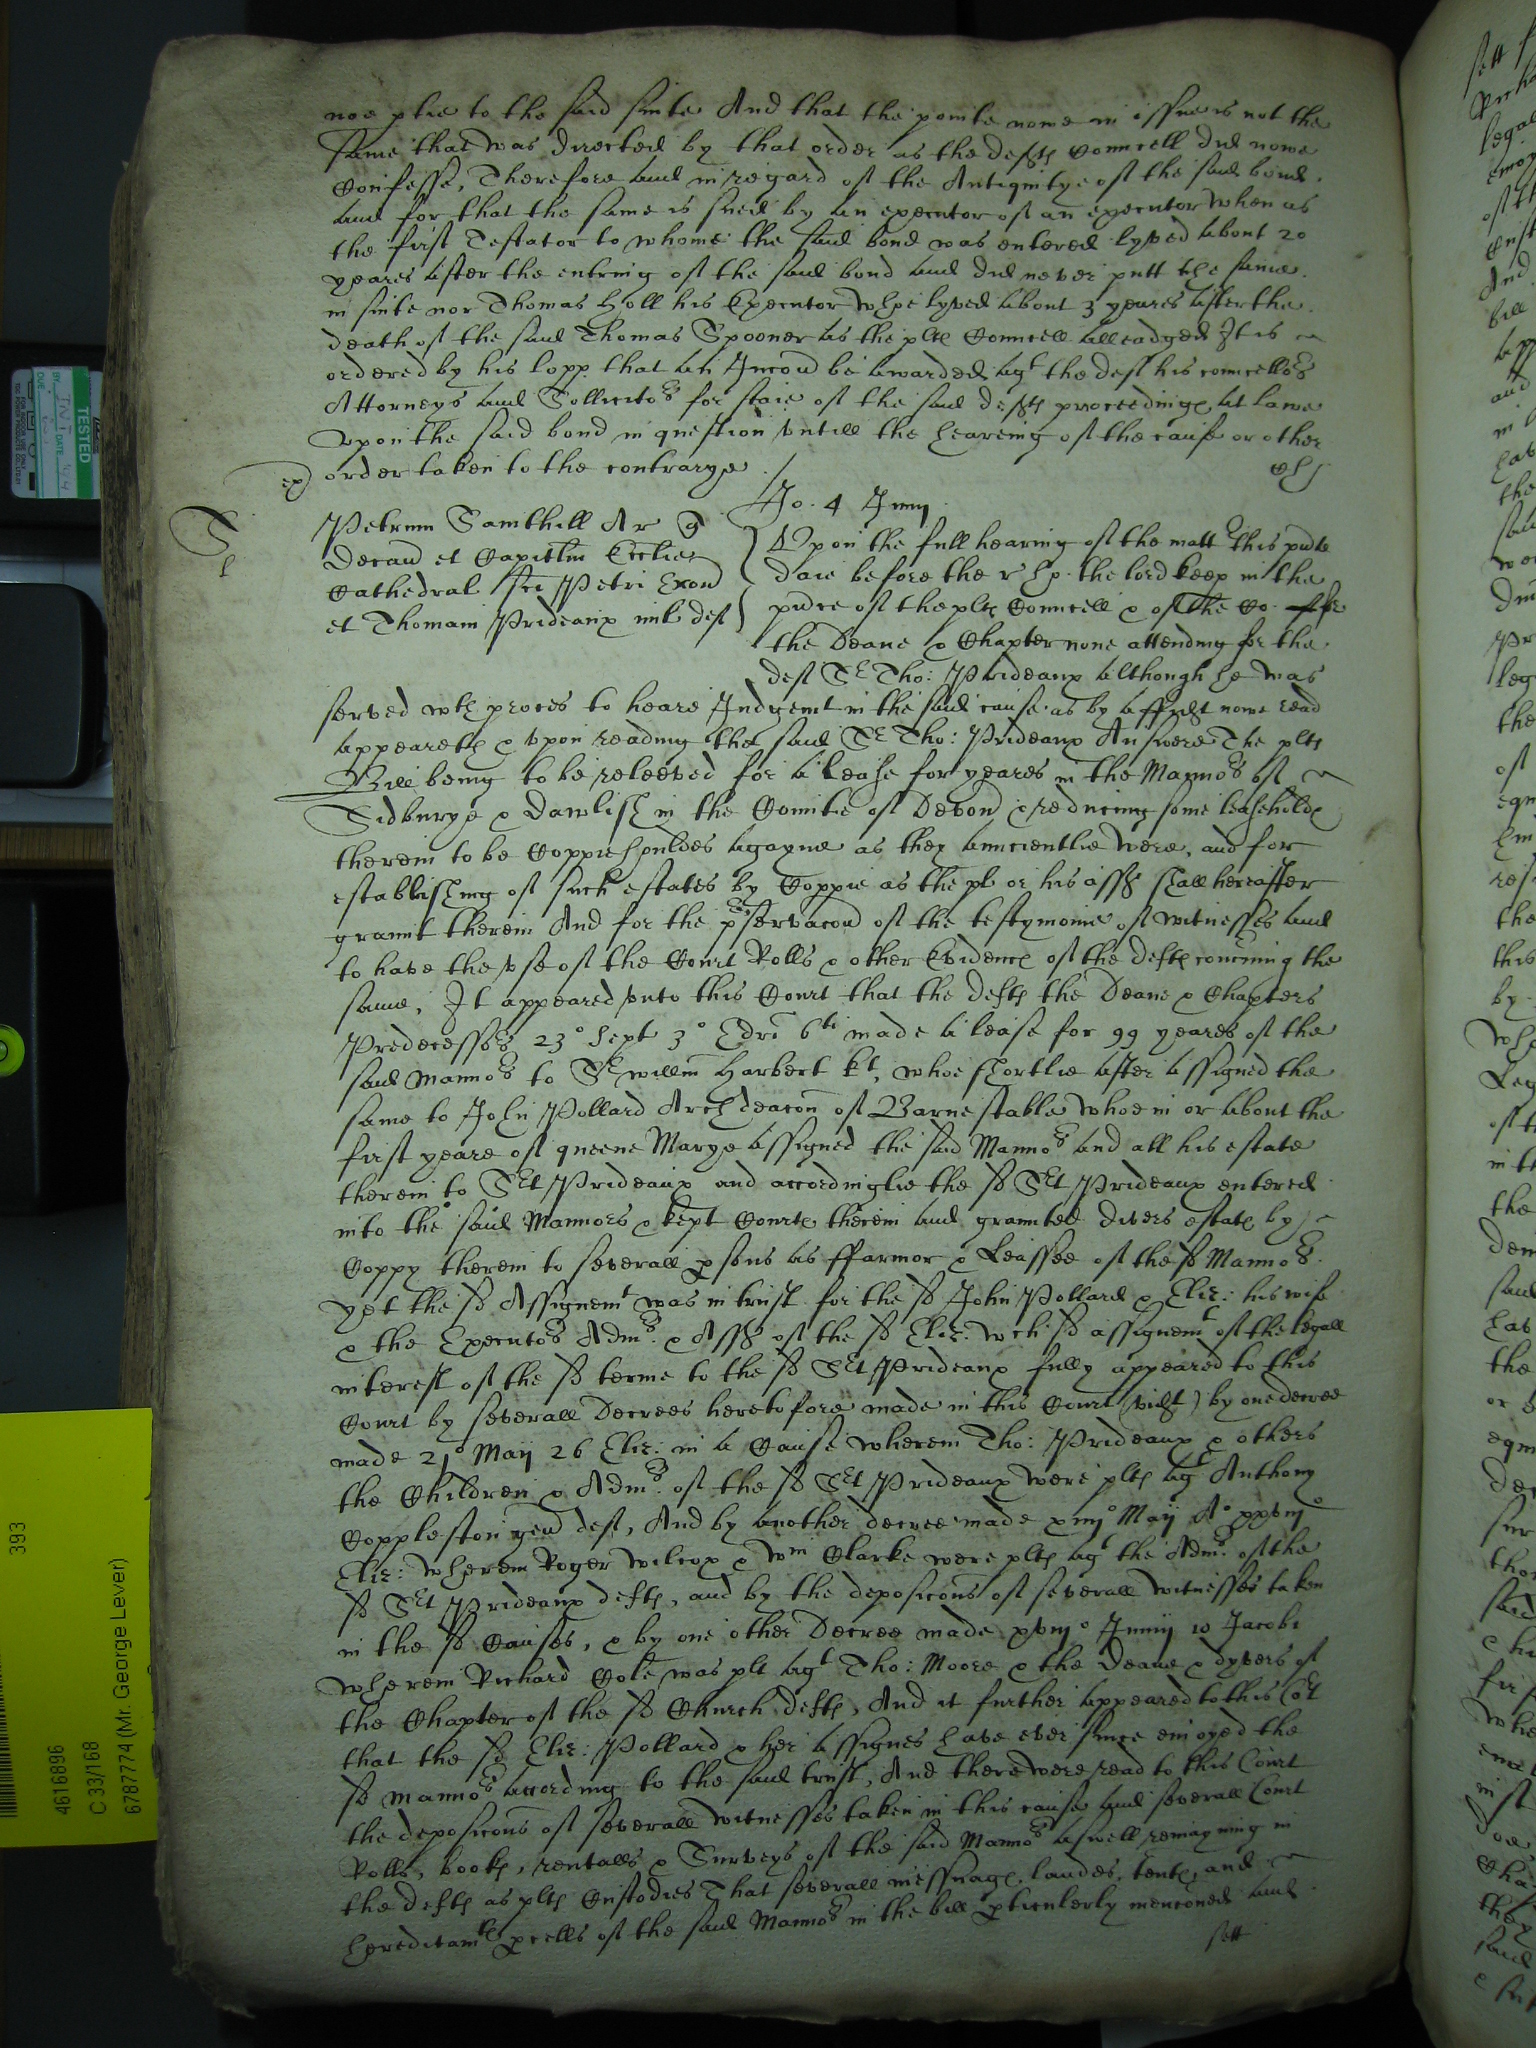 noe ptie to the said suite And that the pointe nowe in issue is not the
same that was directed by that order as the defts Councell did nowe
Confesse, Therefore and in regard of the Antiquitye of the said bond.
and for that the same is sued by an executor of an executor when as
the first Testator to whome the said bond was entered lyved about 20
yeares after the entring of the said bond and did never putt the same.
in suite nor Thomas Holl his Executor whoe lyved about 3 yeares after the.
death of the said Thomas Spooner as the plts Councell alleadged It is
ordered by his lopp. that an Iniuncon be awarded agt the deft his councellors
Attorneys and Sollicitors for staie of the said defts proceedings at lawe
vpon the said bond in question vntill the heareing of the cause or other
order taken to the contrarye
Io. 4 Iunij
Petrum Sainthill Ar q
Decan et Capitlm Ecclie
Cathedral sci Petri Exon
et Thomam Prideaux mil def
Vpon the full hearing of the mattr this pnte
daie before the r ho. the lord keep in the
pnce of the plts Councell & of the Co.
the Deane & Chapter none attending for the
deft Sr Tho: Prideaux although he was
served wth proces to heare Iudgemt in the said cause as by affidt nowe read
appeareth & vpon reading the said Sr Tho: Prideaux Answere The plts
Bill being to be releeved for a lease for yeares in the Mannors of
Sidburye & Dawlish in the Countie of Devon & reducing some leasehilds
therein to be Coppiehouldes agayne as they aunncientlie were, and for
establishing of such estates by Coppie as the pl or his asss shall hereafter
graunt therein And for the pservacon of the testymonie of witnesses and
to have the vse of the Court Rolls & other Evidences of the defts concerning the
same, It appeared vnto this Court that the defts the Deane & Chapters
Predecessors 23o Sept 3o Edri 6ti made a lease for 99 yeares of the
said Mannors to Sr Willm Harbert kt, whoe shortlie after assigned the
same to John Pollard Archdeacon of Barnestable whoe in or about the
first yeare of queene Marye assigned the said Mannors and all his estate
therein to Set Prideaux and accordinglie the sd Set Prideaux entered
into the said Mannors & kept Courts therein and graunted divers estats by
Coppy therein to severall psons as ffarmor & Leassee of the sd Mannors.
yet the sd Assignemt was in trust for the sd John Pollard & Eliz: his wife
& the Executors Admrs. & Asss of the sd Eliz: wch sd assignemt of the legall
interest of the sd terme to the sd Set Prideaux fully appeared to this
Court by severall Decrees heretofore made in this Court (vizt) by one decree
made 21o Maij 26 Eliz: in a Cause wherein Tho: Prideaux & others
the Children & Admrs. of the sd Set Prideaux were plts agt Anthony
Coppleston gen deft, And by another decree made xiiijo Maij Ao xxviijo
Eliz: wherein Roger Wilcox & Wm Clarke were plts agt the Admrs. of the
sd Set Prideaux defts, and by the deposicons of severall witnesses taken
in the sd Causes, & by one other Decree made xviijo Iunij 10 Jacobi
wherein Richard Cole was plt agt Tho: Moore & the Deane & dyvers of
the Chapter of the sd Church defts, And it further appeared to this Cort
that the sd Eliz: Pollard & her assignes have ever since enioyed the
sd Mannors according to the said trust, And there were read to this Court
the deposicons of severall witnesses taken in this cause and severall Court
Rolls, books, rentalls & Surveys of the said Mannors aswell remayning in
the defts as plts Custodies That severall messuags, landes, tents, and
hereditamts pcells of the said Mannors in the bill pticulerly menconed and
sett
TESTED
INT
DATE
393
4616896
C 33/168
6787774 (Mr. George Lever)